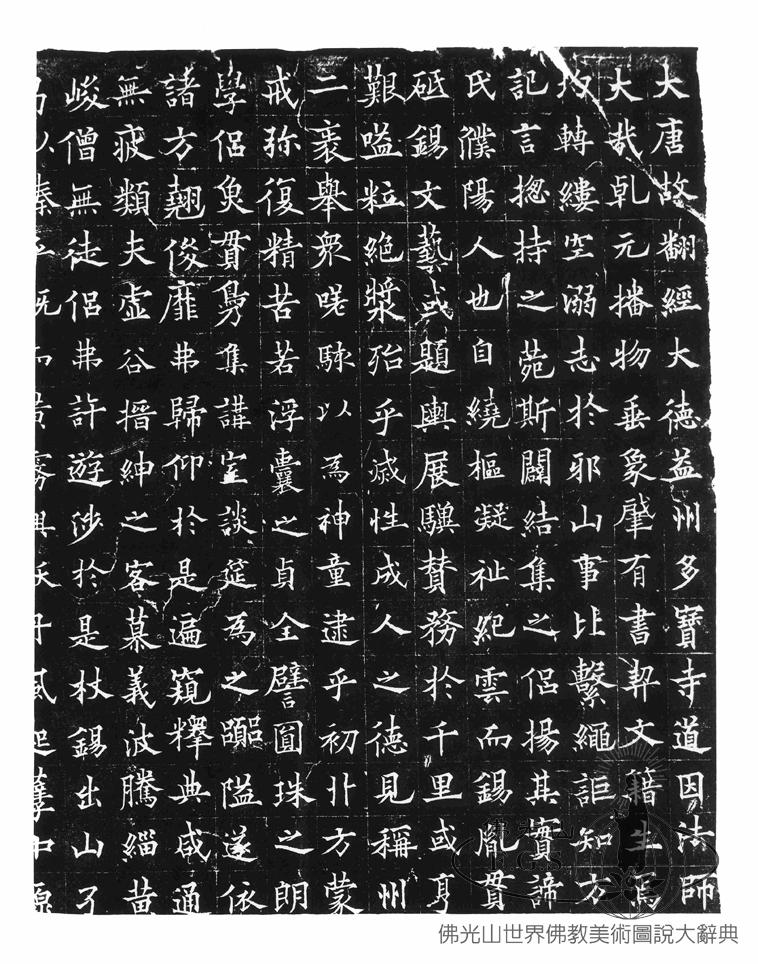 大唐故翻經大德益州多寶寺道因法師
大哉乹元播物垂象肇有書契文籍生焉
轉縷空溺志於邪山事比繫繩詎知方
記言揔持之菀斯闢結集之侶揚其實諦
氏濮陽人也自繞樞凝祉紀雲而錫胤貫
砥錫文藝或題輿展驥賛務於千里或亨
艱嗌粒絶漿殆乎滅性成人之德見稱州
二袠舉眾嗟駭以為神童逮乎初丱方蒙
戒弥復精苦若浮囊之貞全譬圓珠之朗
學侶魚貫鳧集講室談筵為之隘遂依
諸方翹俊靡弗歸仰於是遍窺釋典咸通
無疲類夫虛谷搢紳之客慕義波騰緇黃
峻僧無徒侶弗許遊涉於是杖錫出山
佛光山世界佛教美術圖說大辭典